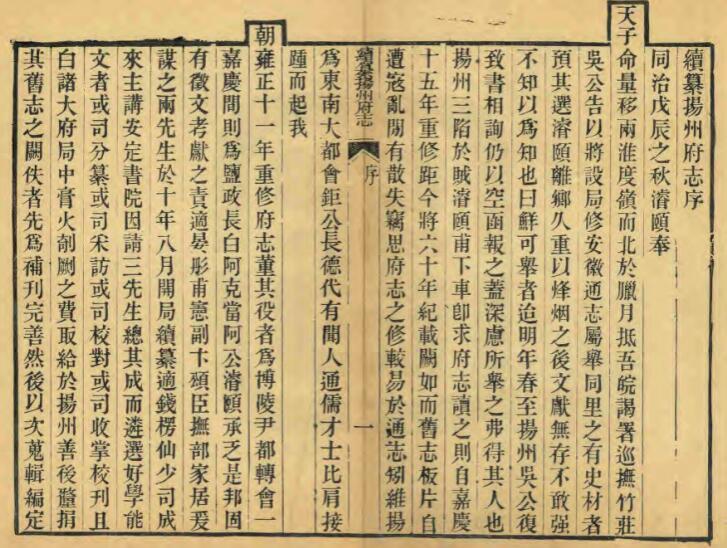 續纂揚州府志序
同治戊辰之秋濬頤奉
天子命量移兩淮度嶺而北於臘月抵吾皖謁署巡撫竹莊
吳公告以將設局修安徽通志屬舉同里之有史材者
預其選濬頤離鄉久重以烽烟之後文獻無存不敢強
不知以爲知也曰鮮可舉者迨明年春至揚州吳公復
致書相詢仍以空函報之蓋深慮所舉之弗得其人也
揚州三陷於賊濬頤甫下車卽求府志讀之則自嘉慶
十五年重修距今將六十年紀載闕如而舊志板片自
遭寇亂閒有散失竊思府志之修較易於通志矧維揚
續纂揚州府志 序 一
爲東南大都會鉅公長德代有聞人通儒才士比肩接
踵而起我
朝雍正十一年重修府志董其役者爲博陵尹都轉會一
嘉慶間則爲鹽政長白阿克當阿公濬頤承乏是邦固
有徵文考獻之責適晏彤甫憲副卞頌臣撫部家居爰
謀之兩先生於十年八月開局續纂適錢楞仙少司成
來主講安定書院因請三先生總其成而遴選好學能
文者或司分纂或司采訪或司校對或司收掌校刊且
白諸大府局中膏火剞劂之費取給於揚州善後釐捐
其舊志之闕佚者先爲補刊完善然後以次蒐輯編定